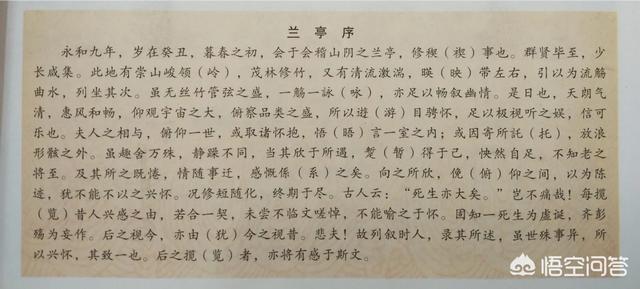 兰亭序
永和九年，岁在癸丑，暮春之初，会于会稽山阴之兰亭，修稧（禊）事也。群贤毕至，少
长咸集。此地有崇山峻领（岭），茂林修竹，又有清流激湍，暎（映）带左右，引以为流觞
曲水，列坐其次。虽无丝竹管弦之盛，一觞一詠（咏），亦足以畅叙幽情。是日也，天朗气
清，惠风和畅，仰观宇宙之大，俯察品类之盛，所以遊（游）目骋怀，足以极视听之娱，信可
乐也。夫人之相与，俯仰一世，或取诸怀抱，悟（晤）言一室之内；或因寄所託（托），放浪
形骸之外。虽趣舍万殊，静躁不同，当其欣于所遇，蹔（暂）得于己，怏然自足，不知老之
将至。及其所之既惓，情随事迁，感慨係（系）之矣。向之所欣，俛（俯）仰之间，以为陈
迹，犹不能不以之兴怀。况修短随化，终期于尽。古人云：“死生亦大矣。”岂不痛哉！每揽
（览）昔人兴感之由，若合一契，未尝不临文嗟悼，不能喻之于怀。固知一死生为虚诞，齐彭
殇为妄作。后之视今，亦由（犹）今之视昔。悲夫！故列叙时人，录其所述，虽世殊事异，所
以兴怀，其致一也。后之揽（览）者，亦将有感于斯文。
悟空问答